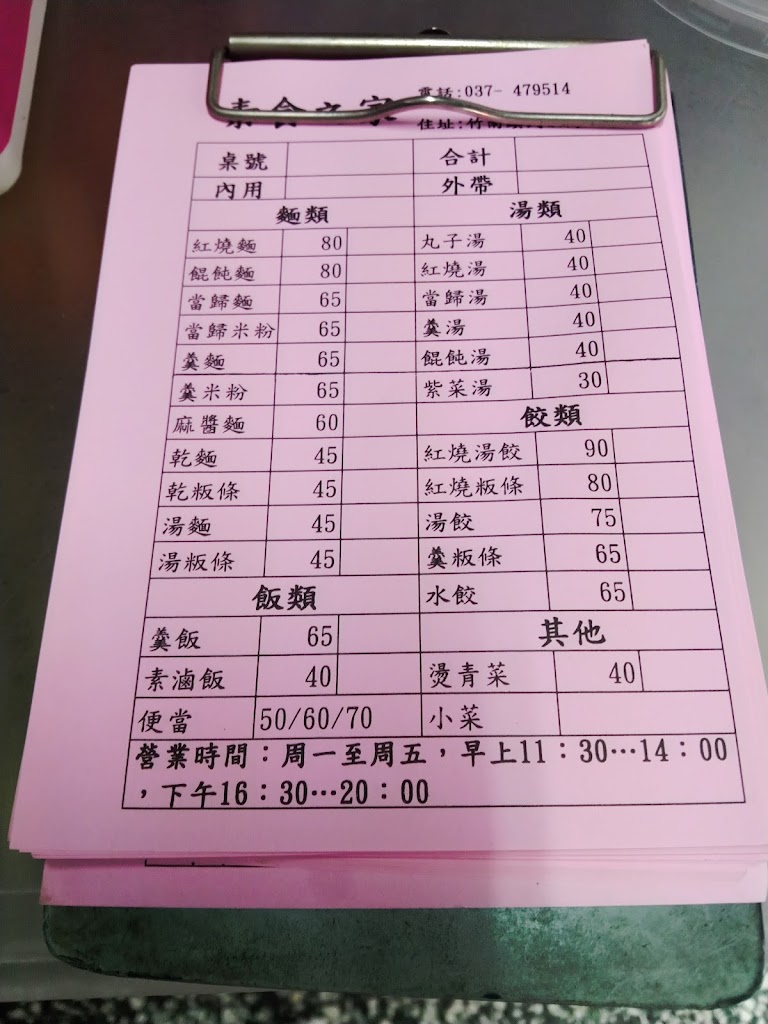 素食之家 電話:037- 479514
住址:竹南
桌號 合計
內用 外帶
麵類 湯類
紅燒麵 80 丸子湯 40
餛飩麵 80 紅燒湯 40
當歸麵 65 當歸湯 40
當歸米粉 65 羹湯 40
羹麵 65 餛飩湯 40
羹米粉 65 紫菜湯 30
麻醬麵 60 餃類
乾麵 45 紅燒湯餃 90
乾粄條 45 紅燒粄條 80
湯麵 45 湯餃 75
湯粄條 45 羹粄條 65
飯類 水餃 65
羹飯 65 其他
素滷飯 40 燙青菜 40
便當 50/60/70 小菜
營業時間：周一至周五，早上11：30…14：00
，下午16：30…20：00